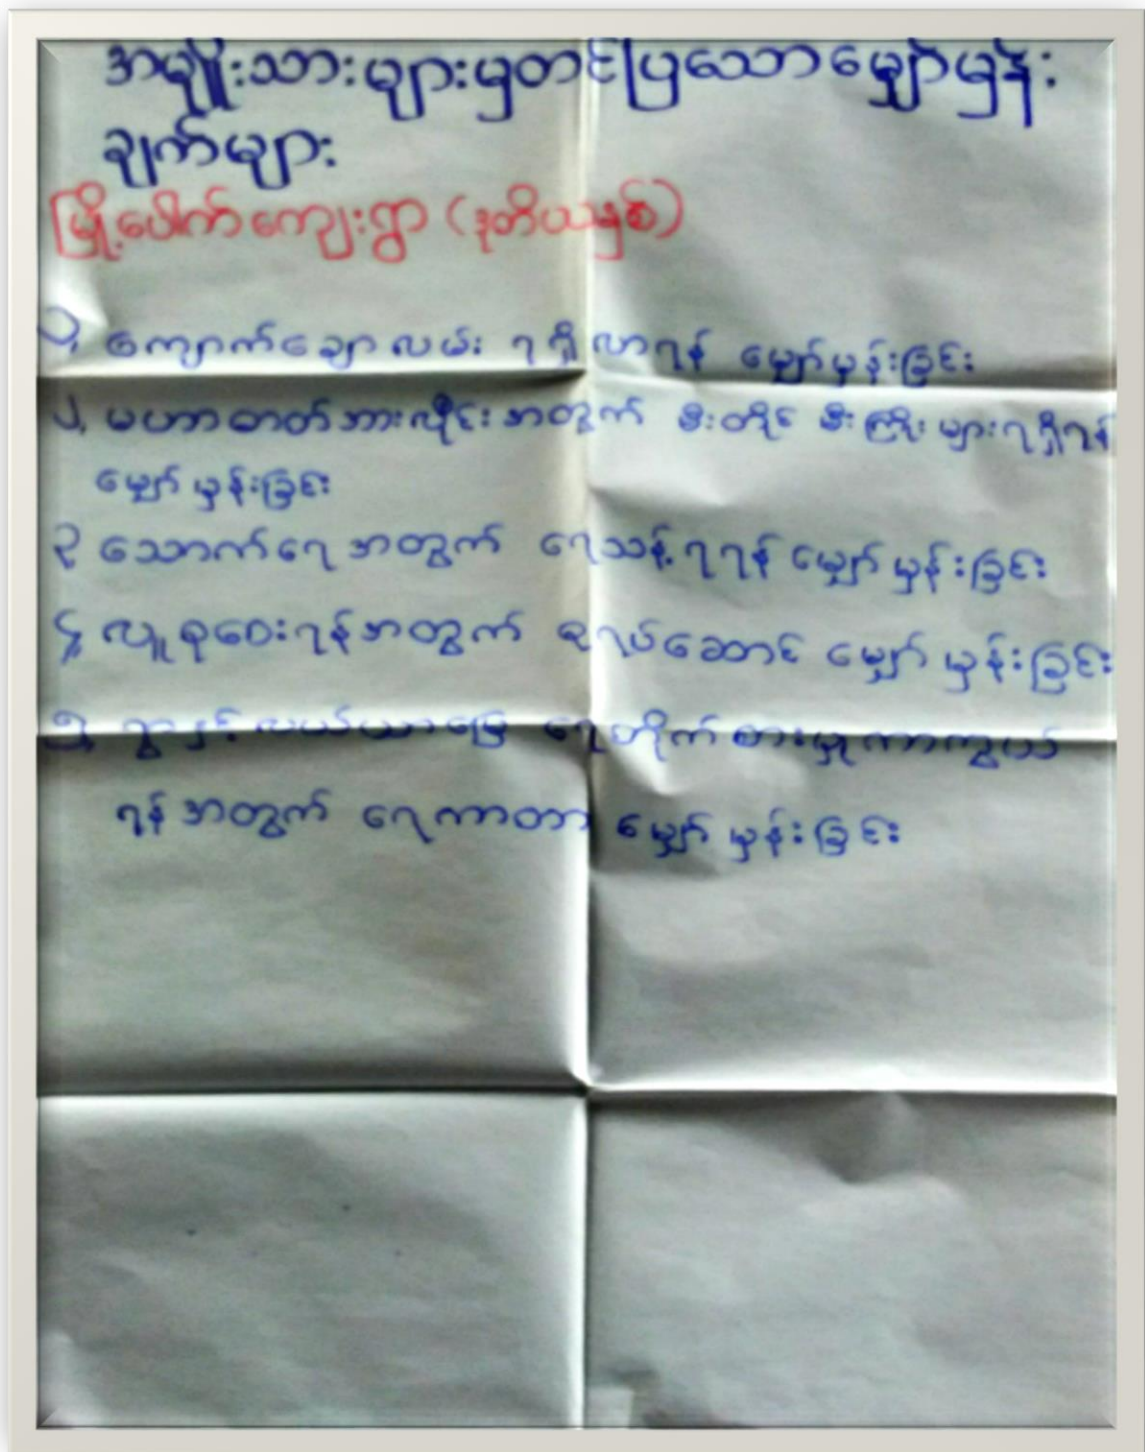 အမျိုးသားများမှတင်ပြသောမျှော်မှန်း
ချက်များ
မြို့ပေါက်ကျေးရွာ (ဒုတိယနှစ်)
၁, ကျောက်ချောလမ်း ရရှိလာရန် မျှော်မှန်းခြင်း
၂, မဟာဓာတ်အားလိုင်းအတွက် မီးတိုင် မီးကြိုးများရရှိရန်
မျှော်မှန်းခြင်း
၃ သောက်ရေအတွက် ရေသန့်ရရန် မျှော်မှန်းခြင်း
၄, လူစုဝေးရန်အတွက် ဇရပ်ဆောင် မျှော်မှန်းခြင်း
၅, ရွာနှင့်လယ်ယာမြေ ရေတိုက်စားမှုကာကွယ်
ရန်အတွက် ရေကာတာ မျှော်မှန်းခြင်း